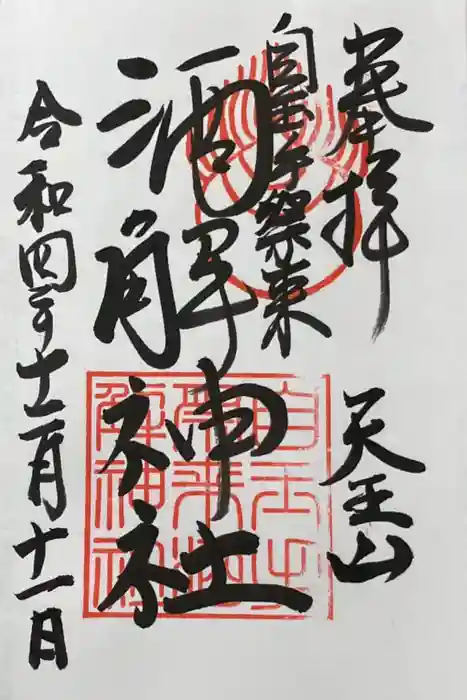 奉拝
天王山
自玉手祭来
酒解神社
令和四年十二月十一日
自玉手
祭来酒
解神社